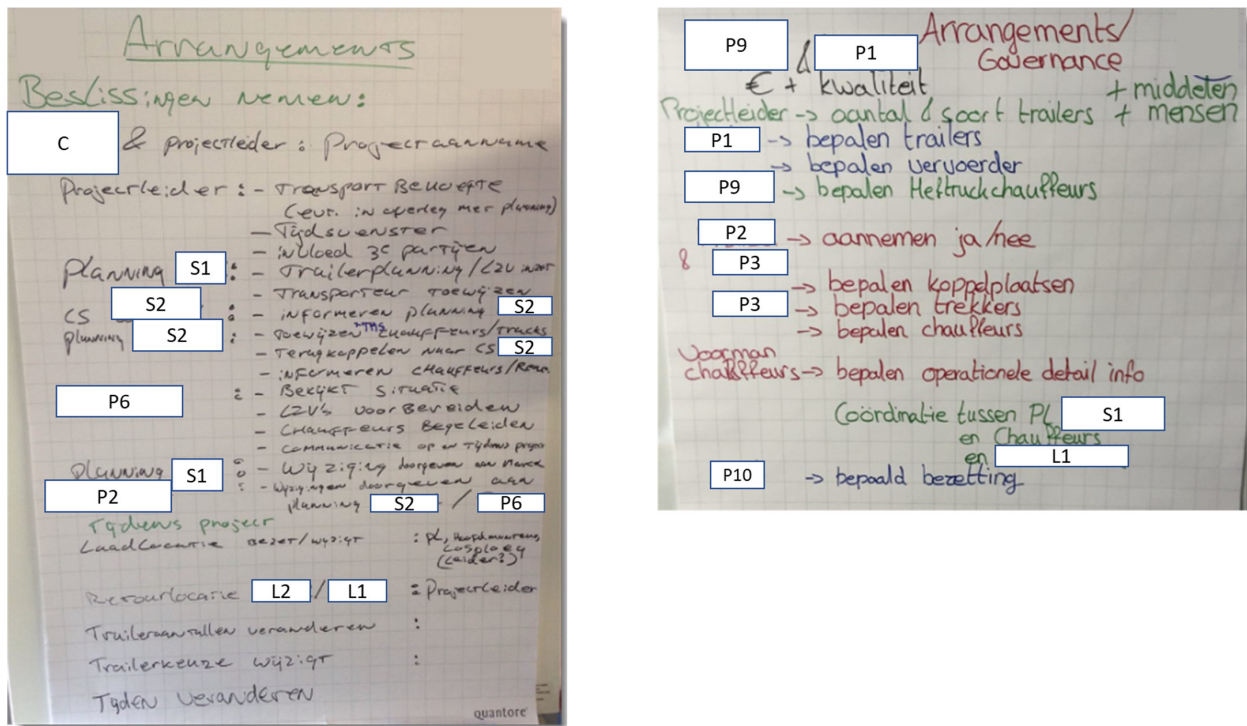 Arrangements
Beslissingen nemen:
C & projectleider : Projectaanname
Projectleider : - Transport Behoefte
(evt. in overleg met planning)
- Tijdsvenster
- invloed 3e partijen
planning S1 : - Trailerplanning/LZV inzet
- Transporteur toewijzen
CS S2 : - informeren planning S2
planning S2 : - Toewijzen TMS chauffeurs/trucks
- Terugkoppelen naar CS S2
- informeren chauffeurs/
P6 : - Bekijkt situatie
- LZV's voorbereiden
- chauffeurs Begeleiden
- communicatie op en tijdens project
planning S1 : - wijziging doorgeven aan
P2 : - wijzigingen doorgeven aan
planning S2 / P6
Tijdens project
Laadlocatie bezet/wijzigt : PL, Hoofdmonteur,
Losploeg
(Leider?)
Retourlocatie L2 / L1 : Projectleider
Traileraantallen veranderen :
Trailerkeuze wijzigt :
Tijden veranderen
quantore
Arrangements/
Governance
P9 & P1
€ + kwaliteit
+ middelen
Projectleider -> aantal & soort trailers + mensen
P1 -> bepalen trailers
-> bepalen vervoerder
P9 -> bepalen Heftruckchauffeurs
P2 -> aannemen ja/nee
& P3
-> bepalen koppelplaatsen
P3 -> bepalen trekkers
-> bepalen chauffeurs
Voorman
chauffeurs -> bepalen operationele detail info
Coördinatie tussen PL S1
en Chauffeurs
en L1
P10 -> bepaald bezetting